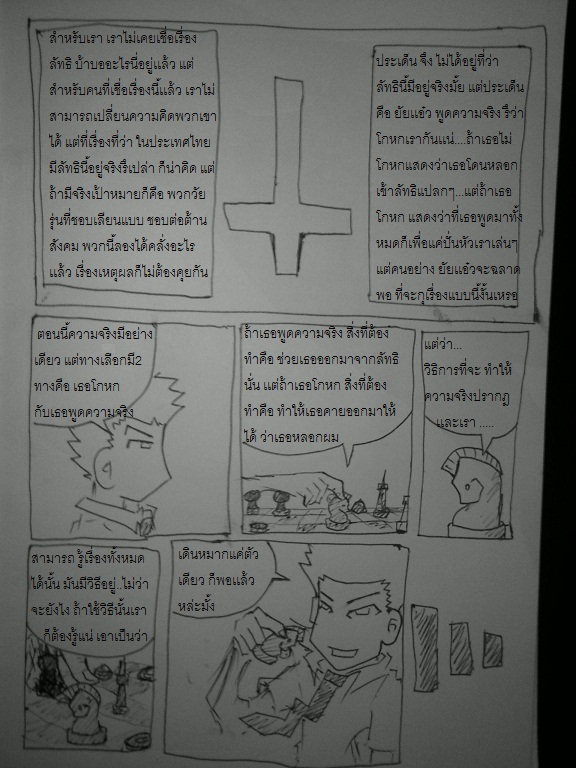 สำหรับเรา เราไม่เคยเชื่อเรื่อง
ลัทธิ บ้าบออะไรนี่อยู่แล้ว แต่
สำหรับคนที่เชื่อเรื่องนี้แล้ว เราไม่
สามารถเปลี่ยนความคิดพวกเขา
ได้ แต่ที่เรื่องที่ว่า ในประเทศไทย
มีลัทธินี้อยู่จริงรึเปล่า ก็น่าคิด แต่
ถ้ามีจริงเป้าหมายก็คือ พวกวัย
รุ่นที่ชอบเลียนแบบ ชอบต่อต้าน
สังคม พวกนี้ลองได้คลั่งอะไร
แล้ว เรื่องเหตุผลก็ไม่ต้องคุยกัน
ประเด็น จึง ไม่ได้อยู่ที่ว่า
ลัทธินี้มีอยู่จริงมั้ย แต่ประเด็น
คือ ยัยแอ๋ว พูดความจริง รึว่า
โกหกเรากันแน่....ถ้าเธอไม่
โกหกแสดงว่าเธอโดนหลอก
เข้าลัทธิแปลกๆ...แต่ถ้าเธอ
โกหก แสดงว่าที่เธอพูดมาทั้ง
หมดก็เพื่อแค่ปั่นหัวเราเล่นๆ
แต่คนอย่าง ยัยแอ๋วจะฉลาด
พอ ที่จะกุเรื่องแบบนี้งั้นเหรอ
ตอนนี้ความจริงมีอย่าง
เดียว แต่ทางเลือกมี2
ทางคือ เธอโกหก
กับเธอพูดความจริง
ถ้าเธอพูดความจริง สิ่งที่ต้อง
ทำคือ ช่วยเธอออกมาจากลัทธิ
นั่น แต่ถ้าเธอโกหก สิ่งที่ต้อง
ทำคือ ทำให้เธอคายออกมาให้
ได้ ว่าเธอหลอกผม
แต่ว่า...
วิธีการที่จะ ทำให้
ความจริงปรากฎ
และเรา .....
สามารถ รู้เรื่องทั้งหมด
ได้นั้น มันมีวิธีอยู่..ไม่ว่า
จะยังไง ถ้าใช้วิธีนั้นเรา
ก็ต้องรู้แน่ เอาเป็นว่า
เดินหมากแค่ตัว
เดียว ก็พอแล้ว
หล่ะมั้ง